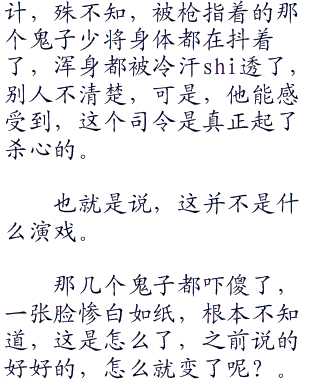 计，殊不知，被枪指着的那
个鬼子少将身体都在抖着
了，浑身都被冷汗shi透了，
别人不清楚，可是，他能感
受到，这个司令是真正起了
杀心的。
也就是说，这并不是什
么演戏。
那几个鬼子都吓傻了，
一张脸惨白如纸，根本不知
道，这是怎么了，之前说的
好好的，怎么就变了呢？。